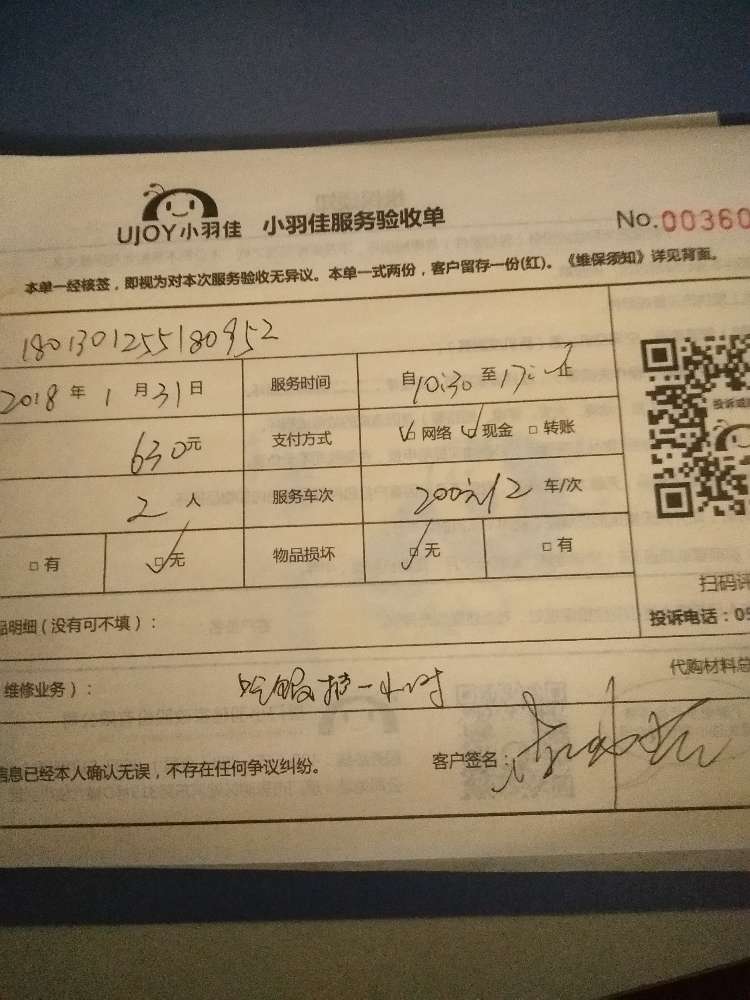 UJOY小羽佳 小羽佳服务验收单 No.00360
本单一经核签，即视为对本次服务验收无异议。本单一式两份，客户留存一份(红)。《维保须知》详见背面。
1801301255180952
2018 年 1 月 31 日 服务时间 自 10:30 至 17: 止
投诉或
630元 支付方式 网络 现金 □ 转账
2 人 服务车次 车/次
□ 有 □ 无 物品损坏 □ 无 □ 有
扫码评
品明细（没有可不填）： 投诉电话：05
代购材料总
维修业务）： 吃饭 一小时
信息已经本人确认无误，不存在任何争议纠纷。 客户签名：